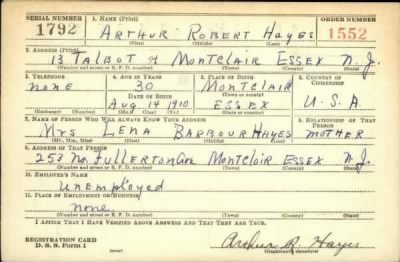 SERIAL NUMBER 1. NAME (Print) ORDER NUMBER
1792 ARTHUR ROBERT HAYES 1552
(First) (Middle) (Last)
2. ADDRESS (Print)
13 TALBOT st MONTCLAIR ESSEX N.J.
(Number and street or R. F. D. number) (Town) (County) (State)
3. TELEPHONE 4. AGE IN YEARS 5. PLACE OF BIRTH 6. COUNTRY OF CITIZENSHIP
NONE 30 MONTCLAIR
DATE OF BIRTH (Town or county)
AUG 14 1910 ESSEX U.S.A.
(Exchange) (Number) (Mo.) (Day) (Yr.) (State or country)
7. NAME OF PERSON WHO WILL ALWAYS KNOW YOUR ADDRESS 8. RELATIONSHIP OF THAT PERSON
MRS LENA BARBOUR HAYES MOTHER
(Mr., Mrs., Miss) (First) (Middle) (Last)
9. ADDRESS OF THAT PERSON
253 No. Fullerton Ave Montclair Essex N.J.
(Number and street or R. F. D. number) (Town) (County) (State)
10. EMPLOYER'S NAME
Unemployed
11. PLACE OF EMPLOYMENT OR BUSINESS
None
(Number and street or R. F. D. number) (Town) (County) (State)
I AFFIRM THAT I HAVE VERIFIED ABOVE ANSWERS AND THAT THEY ARE TRUE.
REGISTRATION CARD
D. S. S. Form 1 Arthur R. Hayes
(Registrant's signature)